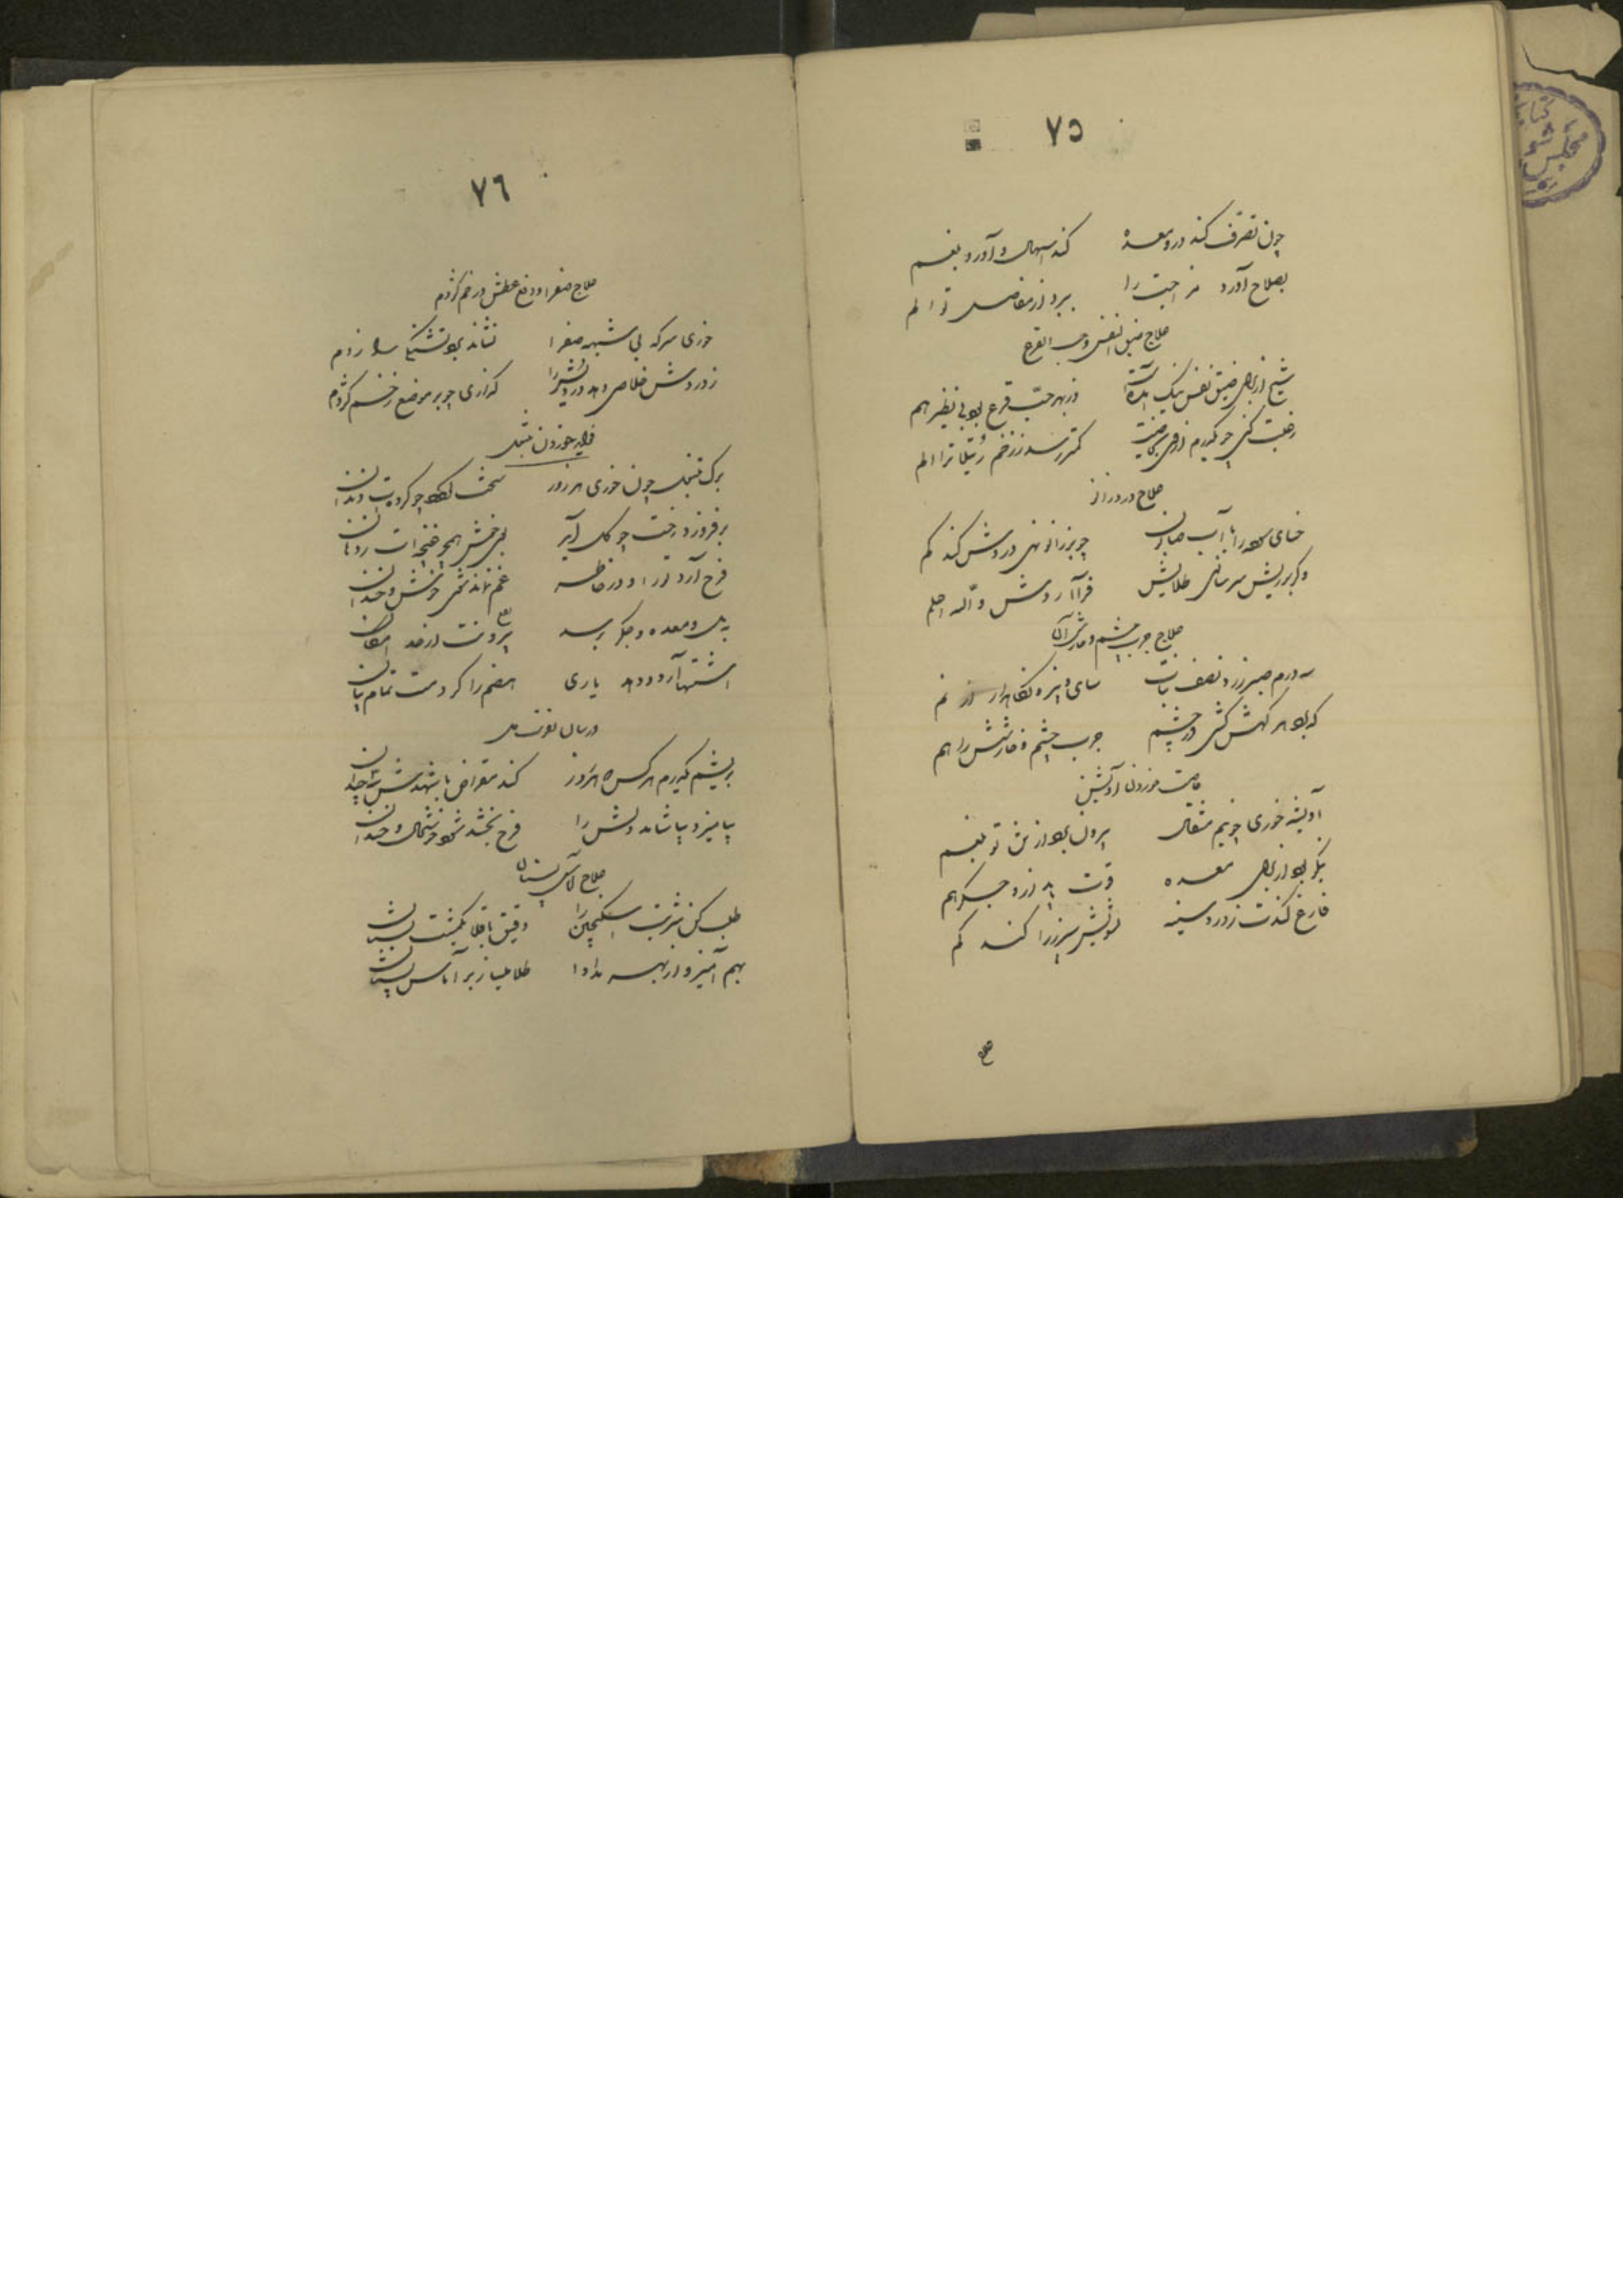 ٧٥
چون تصرف کند در و معده کند اسهال و آورد بلغم
بصلاح آورد مزاجت را ببرد از مفاصل تو الم
علاج ضیق النفس و حب القرع
شیح از برای ضیق نفس نیک از بهر حب قرع بود بی نظیر هم
رغبت کنی چو یکدرم از وی کمتر رسد ز زخم رتیلا ترا الم
علاج درد زانو
حنای سوده را با آب صابون چو بر زانو نهی دردش کند کم
وگر بر ریش سر سازی طلایش فراآردش والله اعلم
علاج جرب چشم و خارش آن
سه درم صبر زرد و نصف نبات سای و از نم
که بود هر گهش کشی در چشم جرب چشم و خارشش را هم
خوردن آویشن
آویشه خوری چو نیم مثقال بیرون بود از تن تو بلغم
نیکو بود از برای معده قوت یابد ازو جگر هم
فارغ کندت ز درد سینه تشویش سپرز را کند کم
علاج
٧٦
علاج صفرا و دفع عطش و زخم کژدم
خوری سرکه بی شبهه صفرا نشاند برد تشنگی را ز مردم
ز دردش خلاصی دهد گذاری چو بر موضع زخم کژدم
فواید خوردن تنبل
برگ تنبل چون خوری هر روز سخت گردد چو گردیت دندان
برفروزد رخت چو گل آید بوی خوش همچو غنچه ات ز دهان
فرح آرد ترا و در خاطر غم نماند شوی خوش و خندان
به دل و معده و جگر برسد نفع بیرونت از حد امکان
اشتها آرد و دهد یاری هضم را گردمت تمام بیان
در بیان قوت دل
بریشم یکدرم هر کس که هر روز کند مقراض با شهدش
بیامیزد بیاشامد دلش را فرح بخشد شود خوشحال و خندان
علاج آماس پستان
طلب کن شربت اسکنجبین را دقیق باقلا یکمشت بستان
بهم آمیز و از بهر مداوا طلا میساز بر آماس پستان